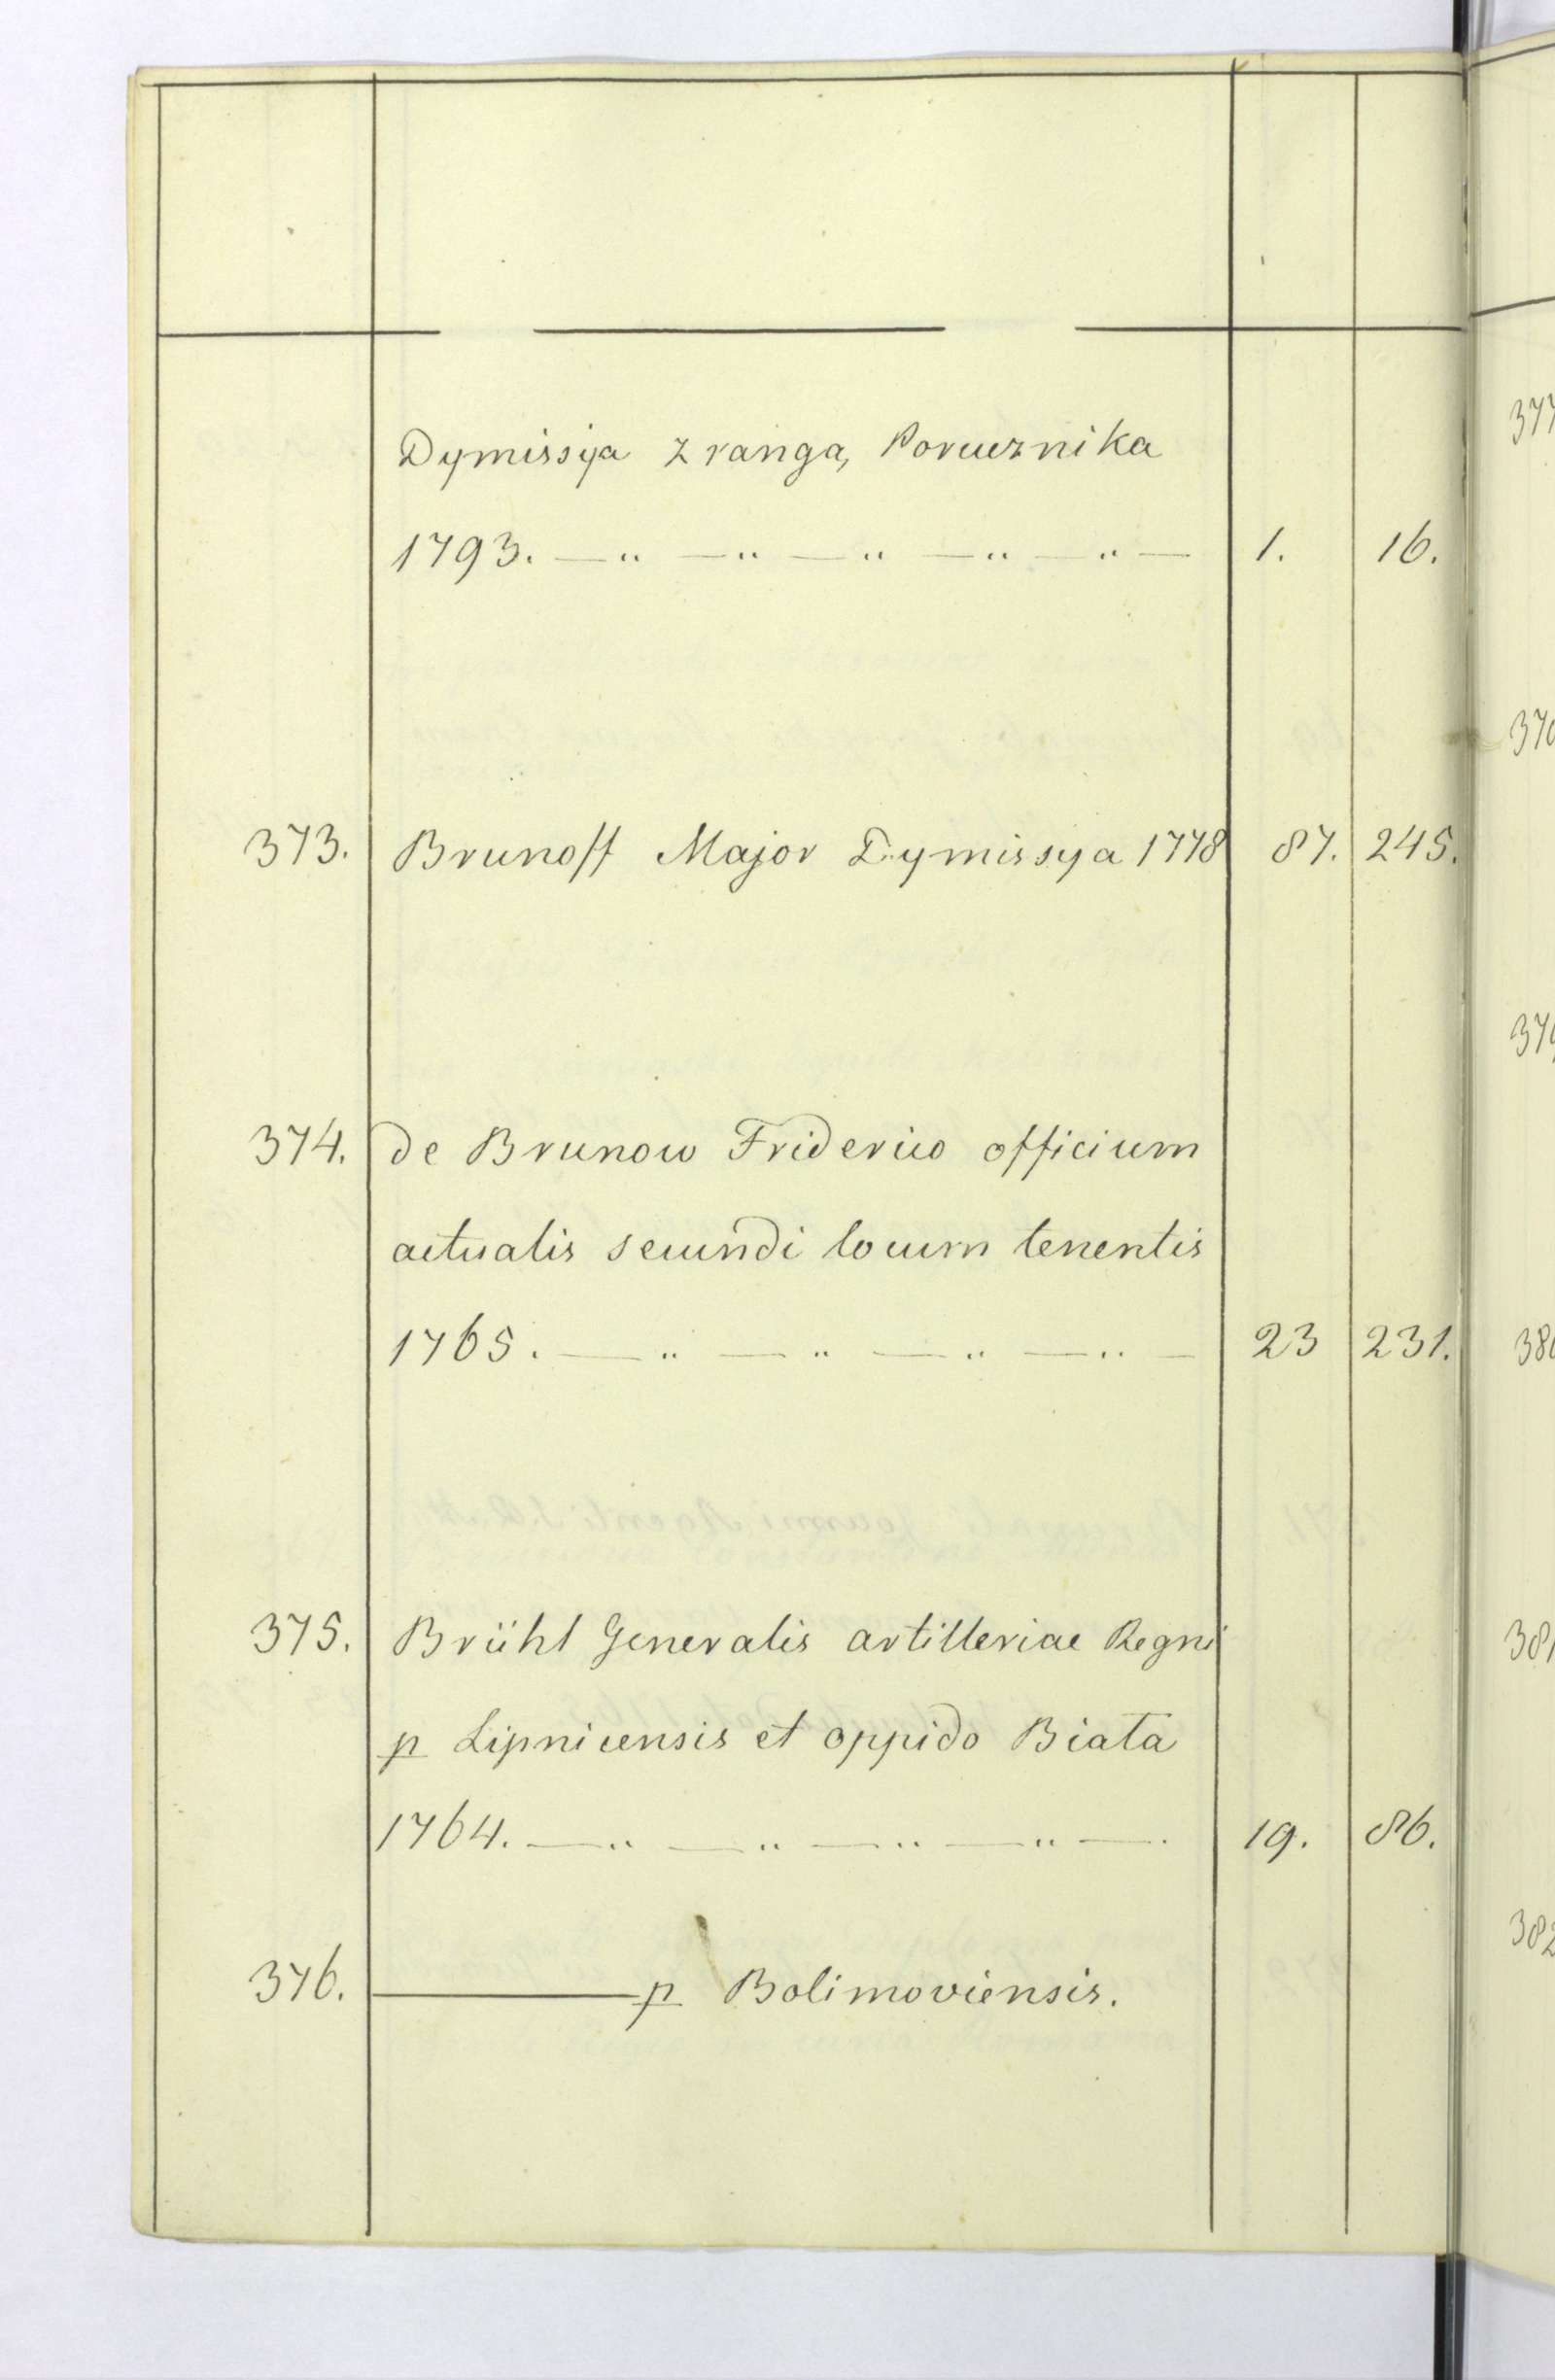 Dymissya z rangą Porucznika
1793. — " — " — " — " — " — 1. 16.
373. Brunoff Major Dymissya 1778 87. 245.
374. de Brunow Friderico officium
actualis secundi locum tenentis
1765. — " — " — " — " — 23 231.
375. Brühl Generalis artilleriae Regni
p Lipnicensis et oppido Biała
1764. — " — " — " — " — . 19. 86.
376. ——— p Bolimoviensis.